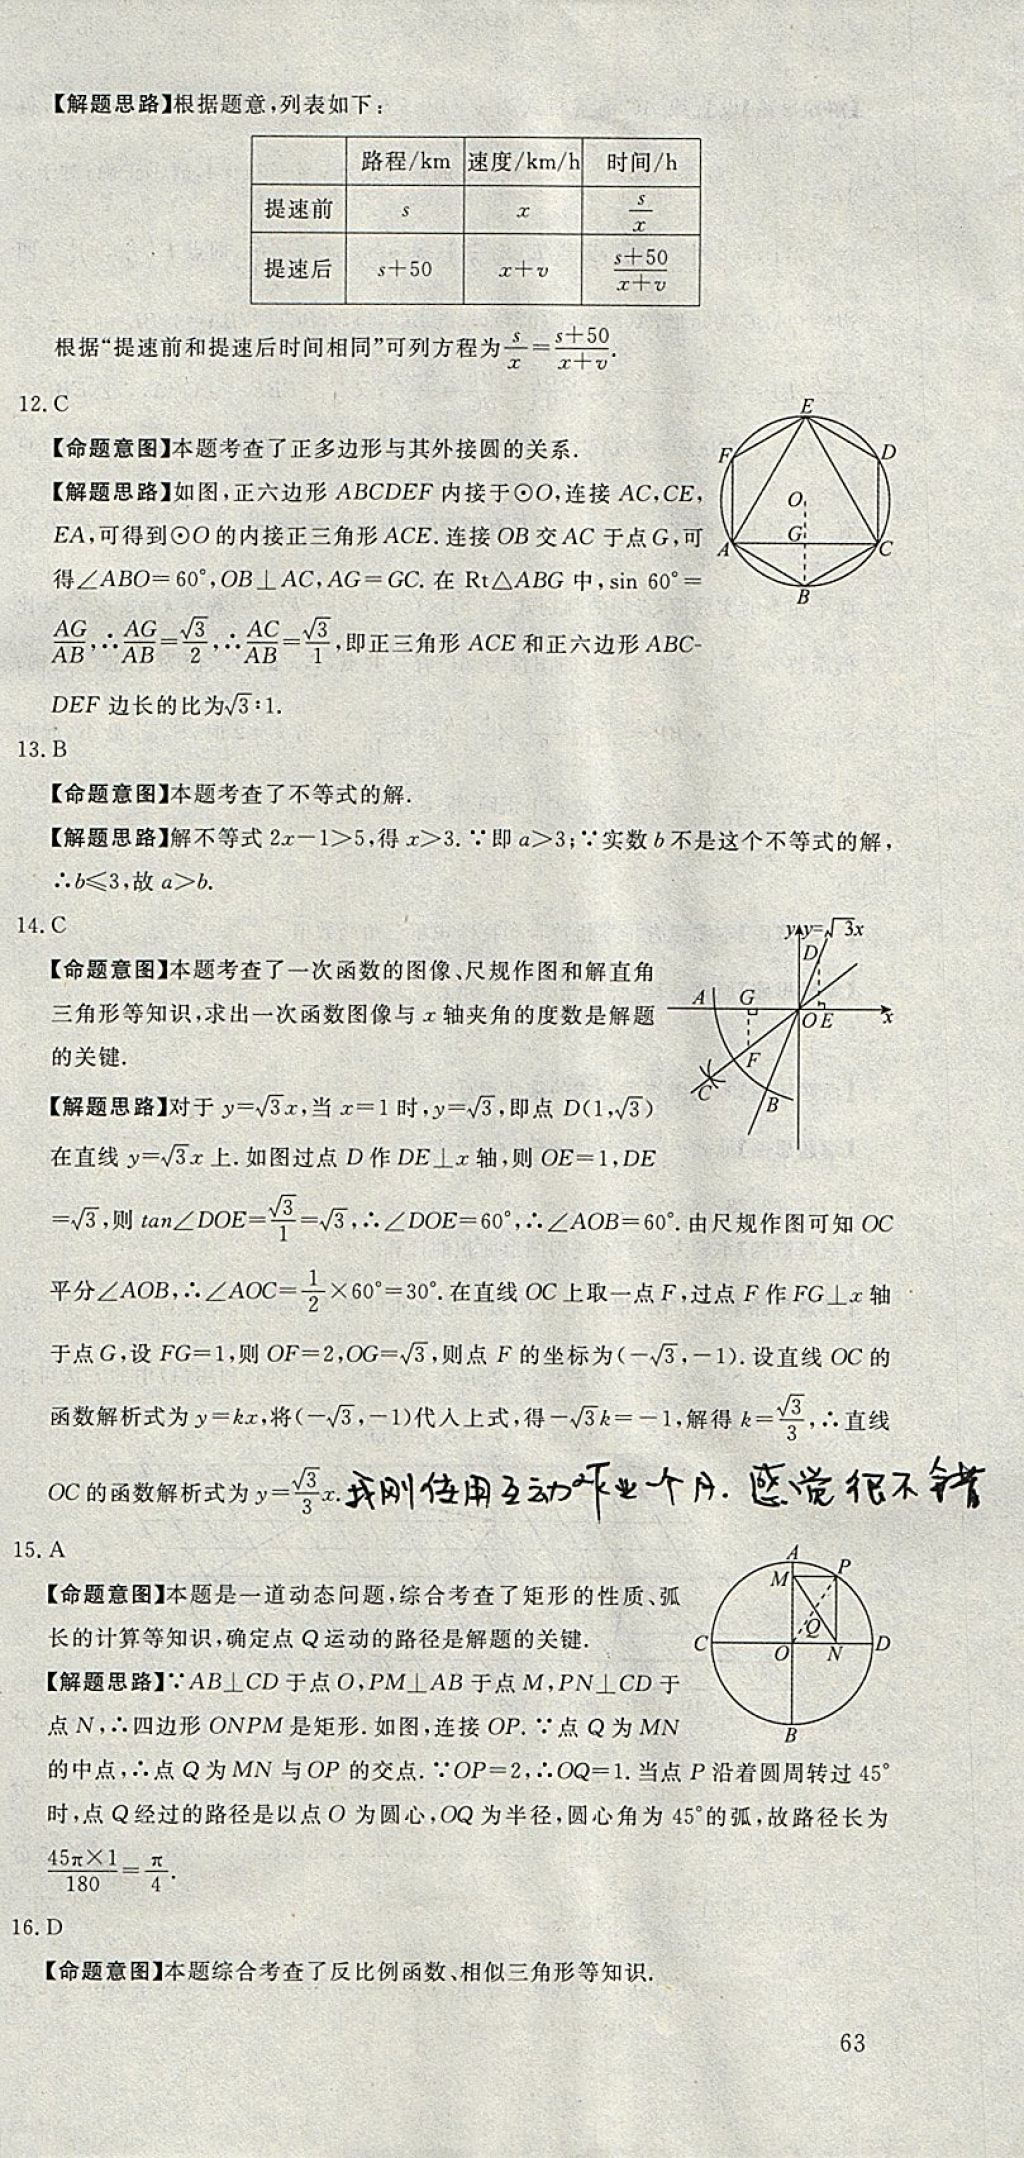 【解题思路】根据题意,列表如下:
路程/km 速度/km/h 时间/h
提速前 s x s/x
提速后 s+50 x+v (s+50)/(x+v)
根据“提速前和提速后时间相同”可列方程为s/x=(s+50)/(x+v).
12. C
【命题意图】本题考查了正多边形与其外接圆的关系.
【解题思路】如图,正六边形 ABCDEF 内接于⊙O,连接 AC,CE,
EA,可得到⊙O 的内接正三角形 ACE. 连接 OB 交 AC 于点 G,可
得∠ABO=60°,OB⊥AC,AG=GC. 在 Rt△ABG 中,sin 60°=
AG/AB,∴AG/AB=√3/2,∴AC/AB=√3/1,即正三角形 ACE 和正六边形 ABC-
DEF 边长的比为√3∶1.
E
F
D
O
G
A
C
B
13. B
【命题意图】本题考查了不等式的解.
【解题思路】解不等式 2x-1>5,得 x>3. ∵即 a>3;∵实数 b 不是这个不等式的解,
∴b≤3,故 a>b.
14. C
【命题意图】本题考查了一次函数的图像、尺规作图和解直角
三角形等知识,求出一次函数图像与 x 轴夹角的度数是解题
的关键.
【解题思路】对于 y=√3x,当 x=1 时,y=√3,即点 D(1,√3)
在直线 y=√3x 上. 如图过点 D 作 DE⊥x 轴,则 OE=1,DE
=√3,则 tan∠DOE=√3/1=√3,∴∠DOE=60°,∴∠AOB=60°. 由尺规作图可知 OC
平分∠AOB,∴∠AOC=1/2×60°=30°. 在直线 OC 上取一点 F,过点 F 作 FG⊥x 轴
于点 G,设 FG=1,则 OF=2,OG=√3,则点 F 的坐标为(-√3,-1). 设直线 OC 的
函数解析式为 y=kx,将(-√3,-1)代入上式,得-√3k=-1,解得 k=√3/3,∴直线
OC 的函数解析式为 y=√3/3x. 我刚使用互动作业一个月. 感觉很不错
y y=√3x
D
A G
O E x
F
C
B
15. A
【命题意图】本题是一道动态问题,综合考查了矩形的性质、弧
长的计算等知识,确定点 Q 运动的路径是解题的关键.
【解题思路】∵AB⊥CD 于点 O,PM⊥AB 于点 M,PN⊥CD 于
点 N,∴四边形 ONPM 是矩形. 如图,连接 OP. ∵点 Q 为 MN
的中点,∴点 Q 为 MN 与 OP 的交点. ∵OP=2,∴OQ=1. 当点 P 沿着圆周转过 45°
时,点 Q 经过的路径是以点 O 为圆心,OQ 为半径,圆心角为 45°的弧,故路径长为
45π×1/180=π/4.
A
M P
Q
C O N D
B
16. D
【命题意图】本题综合考查了反比例函数、相似三角形等知识.
63